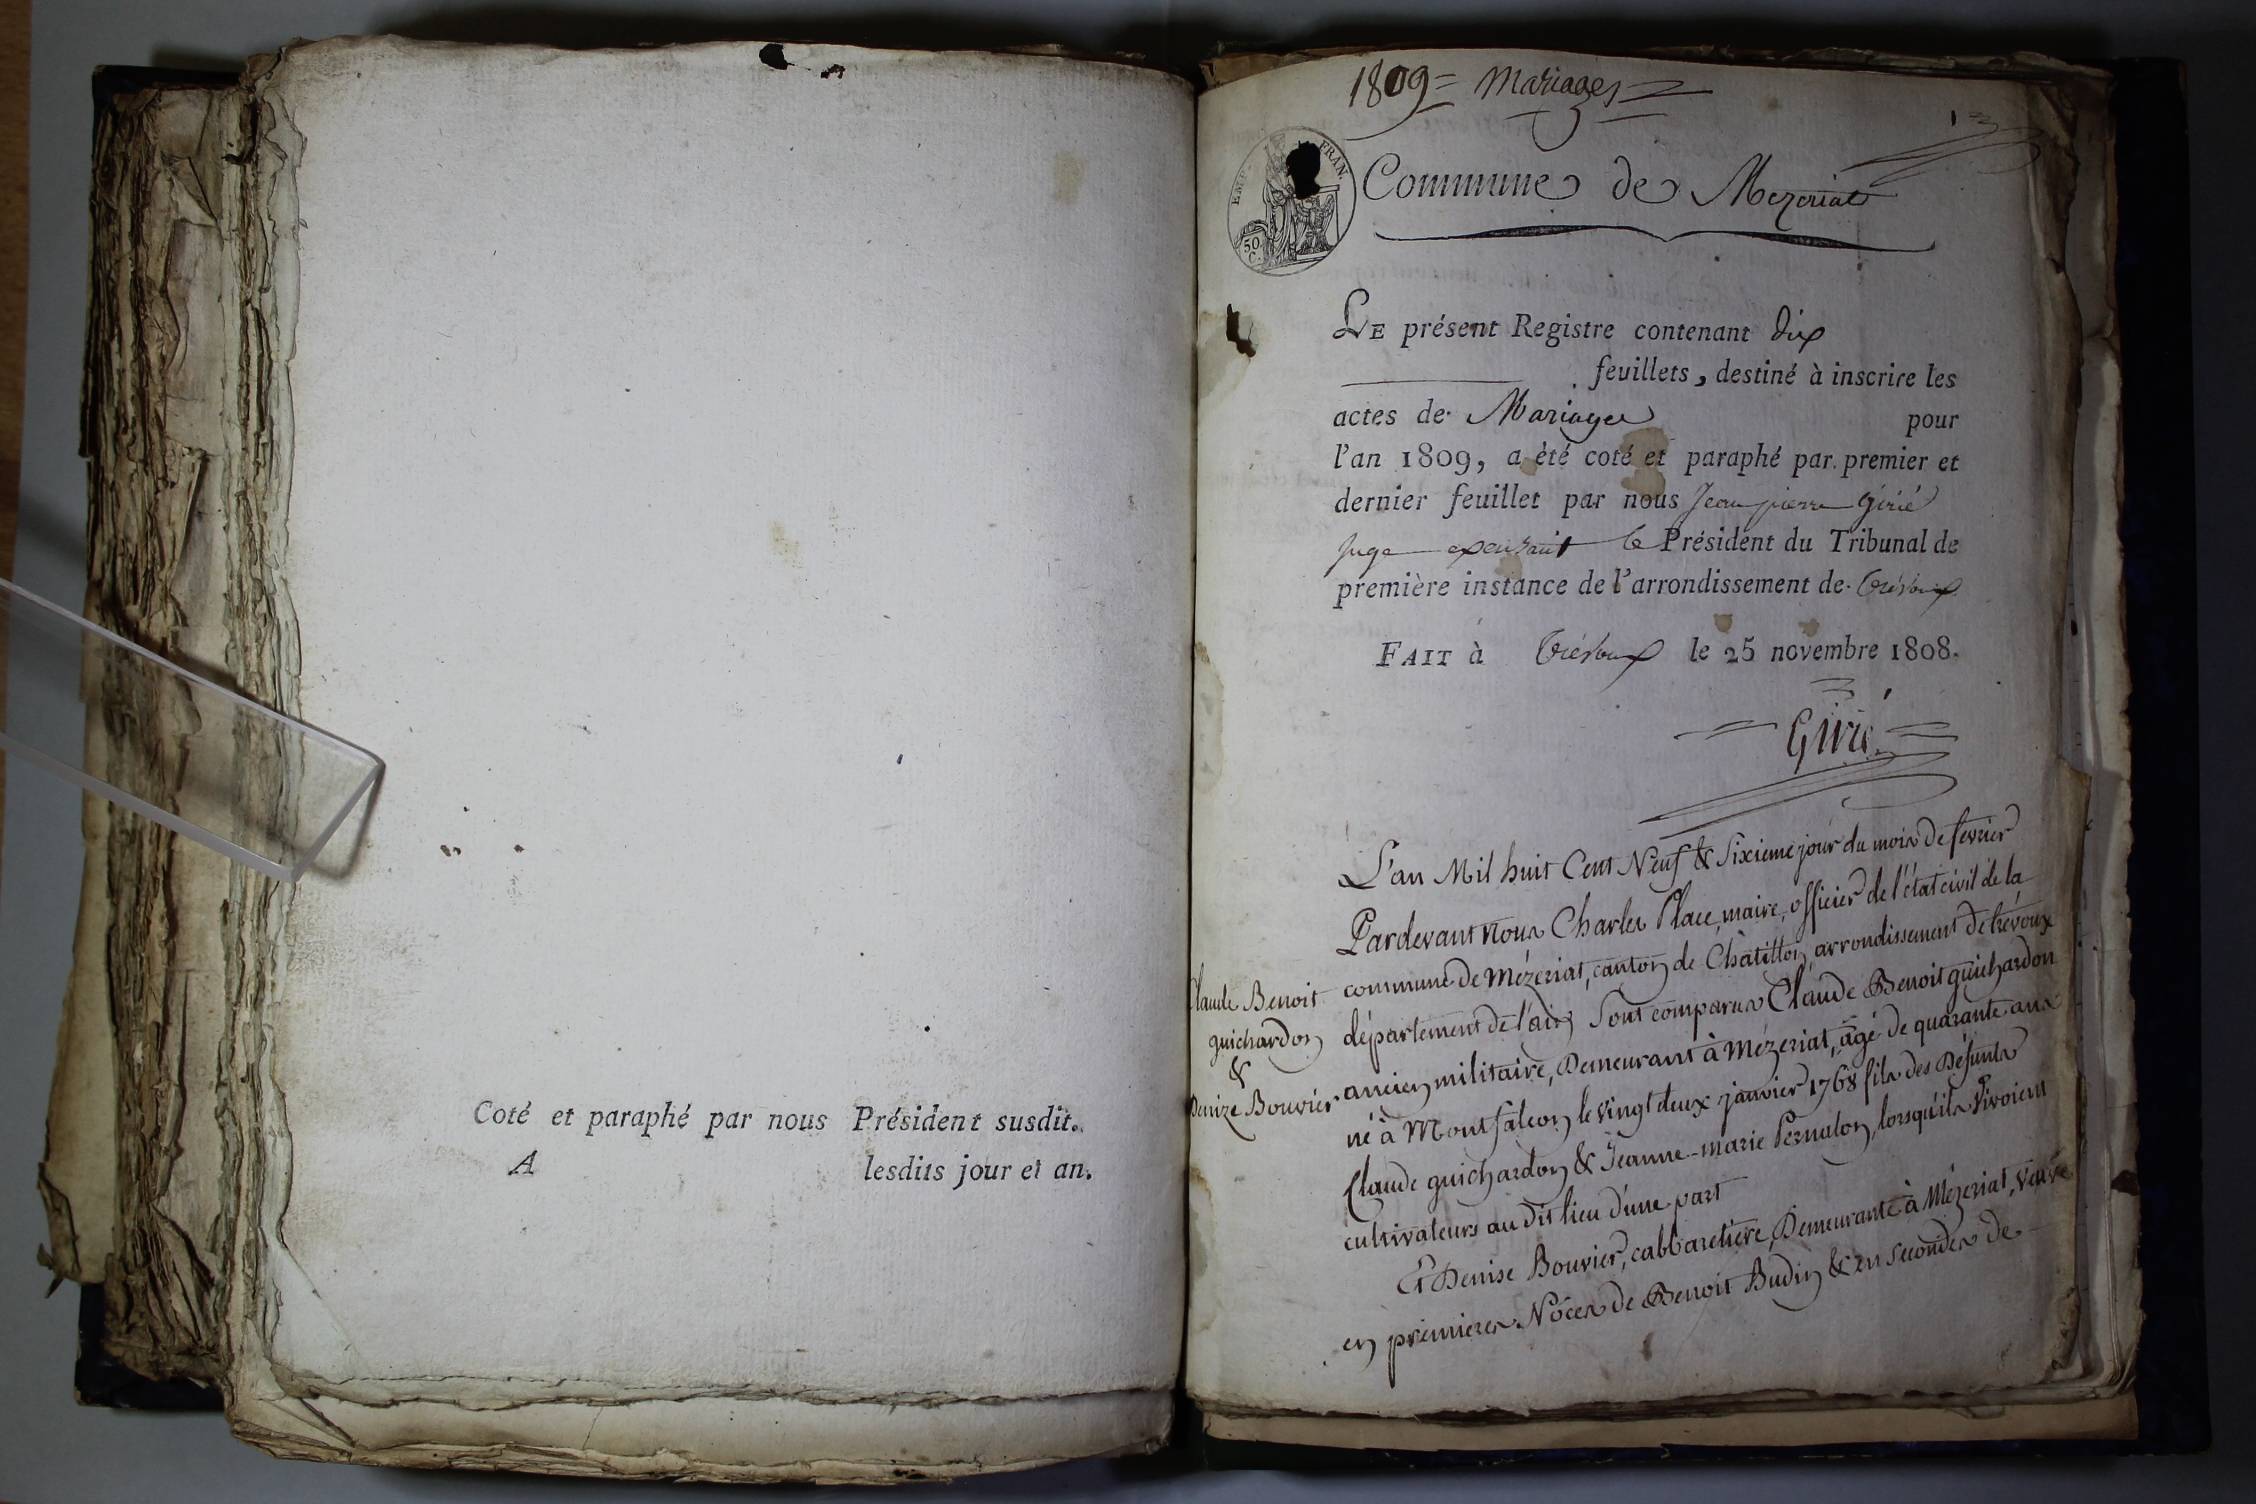 Coté et paraphé par nous Président susdit.
A lesdits jour et an.
1809 = Mariages =
1
EMP. FRAN.
50 C.
Commune de Mezeriat
LE présent Registre contenant dix
feuillets, destiné à inscrire les
actes de Mariage pour
l'an 1809, a été coté et paraphé par premier et
dernier feuillet par nous Jean pierre Girié
juge exerçant le Président du Tribunal de
première instance de l'arrondissement de Trévoux
FAIT à Trévoux le 25 novembre 1808.
Girié
L'an Mil huit Cent Neuf & Sixieme jour du mois de fevrier
Pardevant Nous Charles Place, maire, officier de l'état civil de la
commune de Mézeriat, canton de Châtillon, arrondissement de trévoux
département de l'ain, Sont comparus Claude Benoit guichardon
ancien militaire, Demeurant à Mézeriat, âgé de quarante ans
né à Montfalcon le vingt deux janvier 1768 fils des Défunts
Claude guichardon & Jeanne-marie Pernalon, lorsqu'ils vivoient
cultivateurs au dit lieu d'une part
Et Denise Bouvier, cabbaretière, Demeurante à Mézeriat, veuve
en premieres Nôces de Benoit Budin & en secondes de
Claude Benoit
guichardon
&
Denize Bouvier